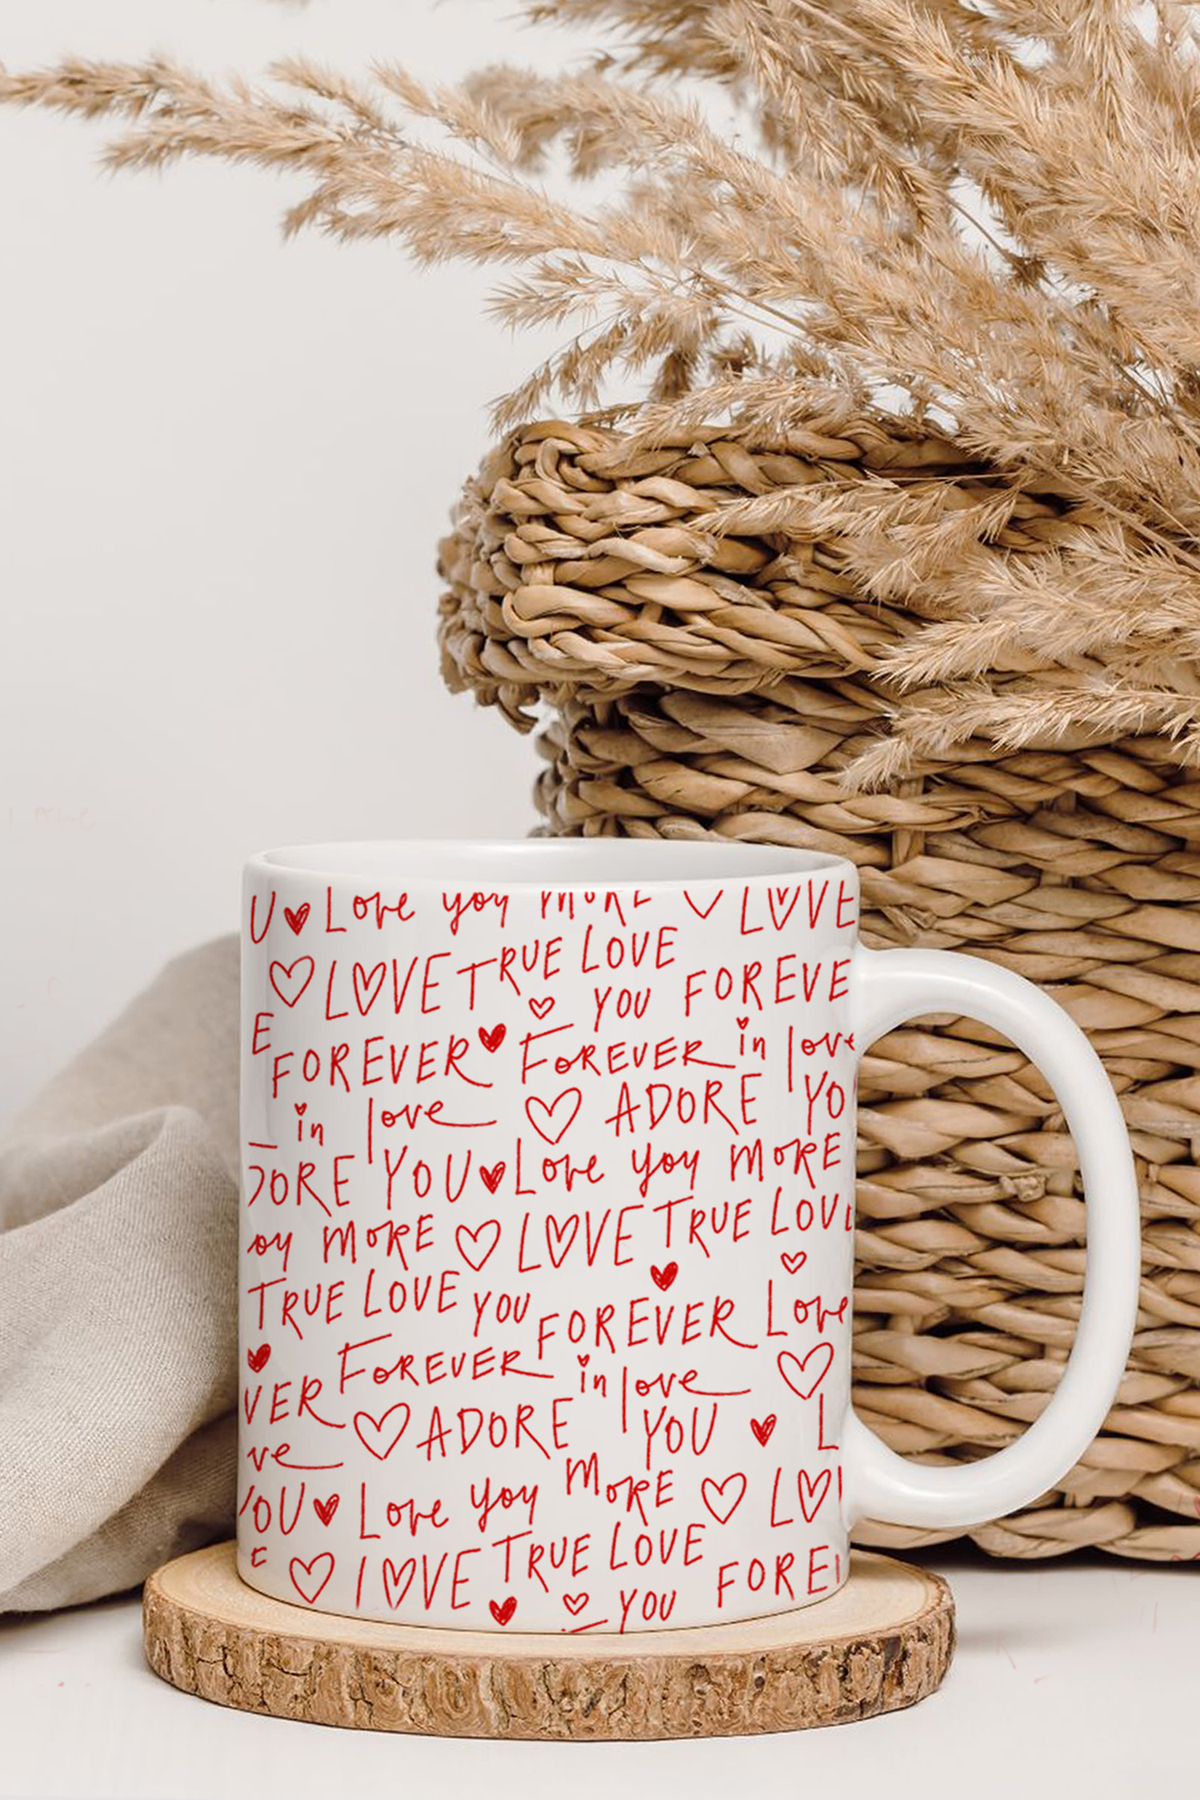 U Love you MORE LOVE
LOVE TRUE LOVE
YOU FOREVE
E FOREVER FOREVER in love
in love ADORE YO
DORE YOU Love you MORE
oy MORE LOVE TRUE LOV
TRUE LOVE YOU FOREVER Love
VER FOREVER in love
ve ADORE YOU L
YOU Love you MORE LO
E LOVE TRUE LOVE
YOU FORE